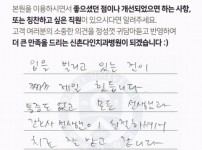 본원을 이용하시면서 좋으셨던 점이나 개선되었으면 하는 사항,
또는 칭찬하고 싶은 직원이 있으시다면 알려주세요.
고객 여러분의 소중한 의견을 정성껏 귀담아듣고 반영하여
더 큰 만족을 드리는 신촌다인치과병원이 되겠습니다 :)
입을 벌리고 있는 것이
제일 힘듭니다
통증도 없고 모든 선생님과
간호사 선생님이 친절하셔서
치료 잘 받고 갑니다